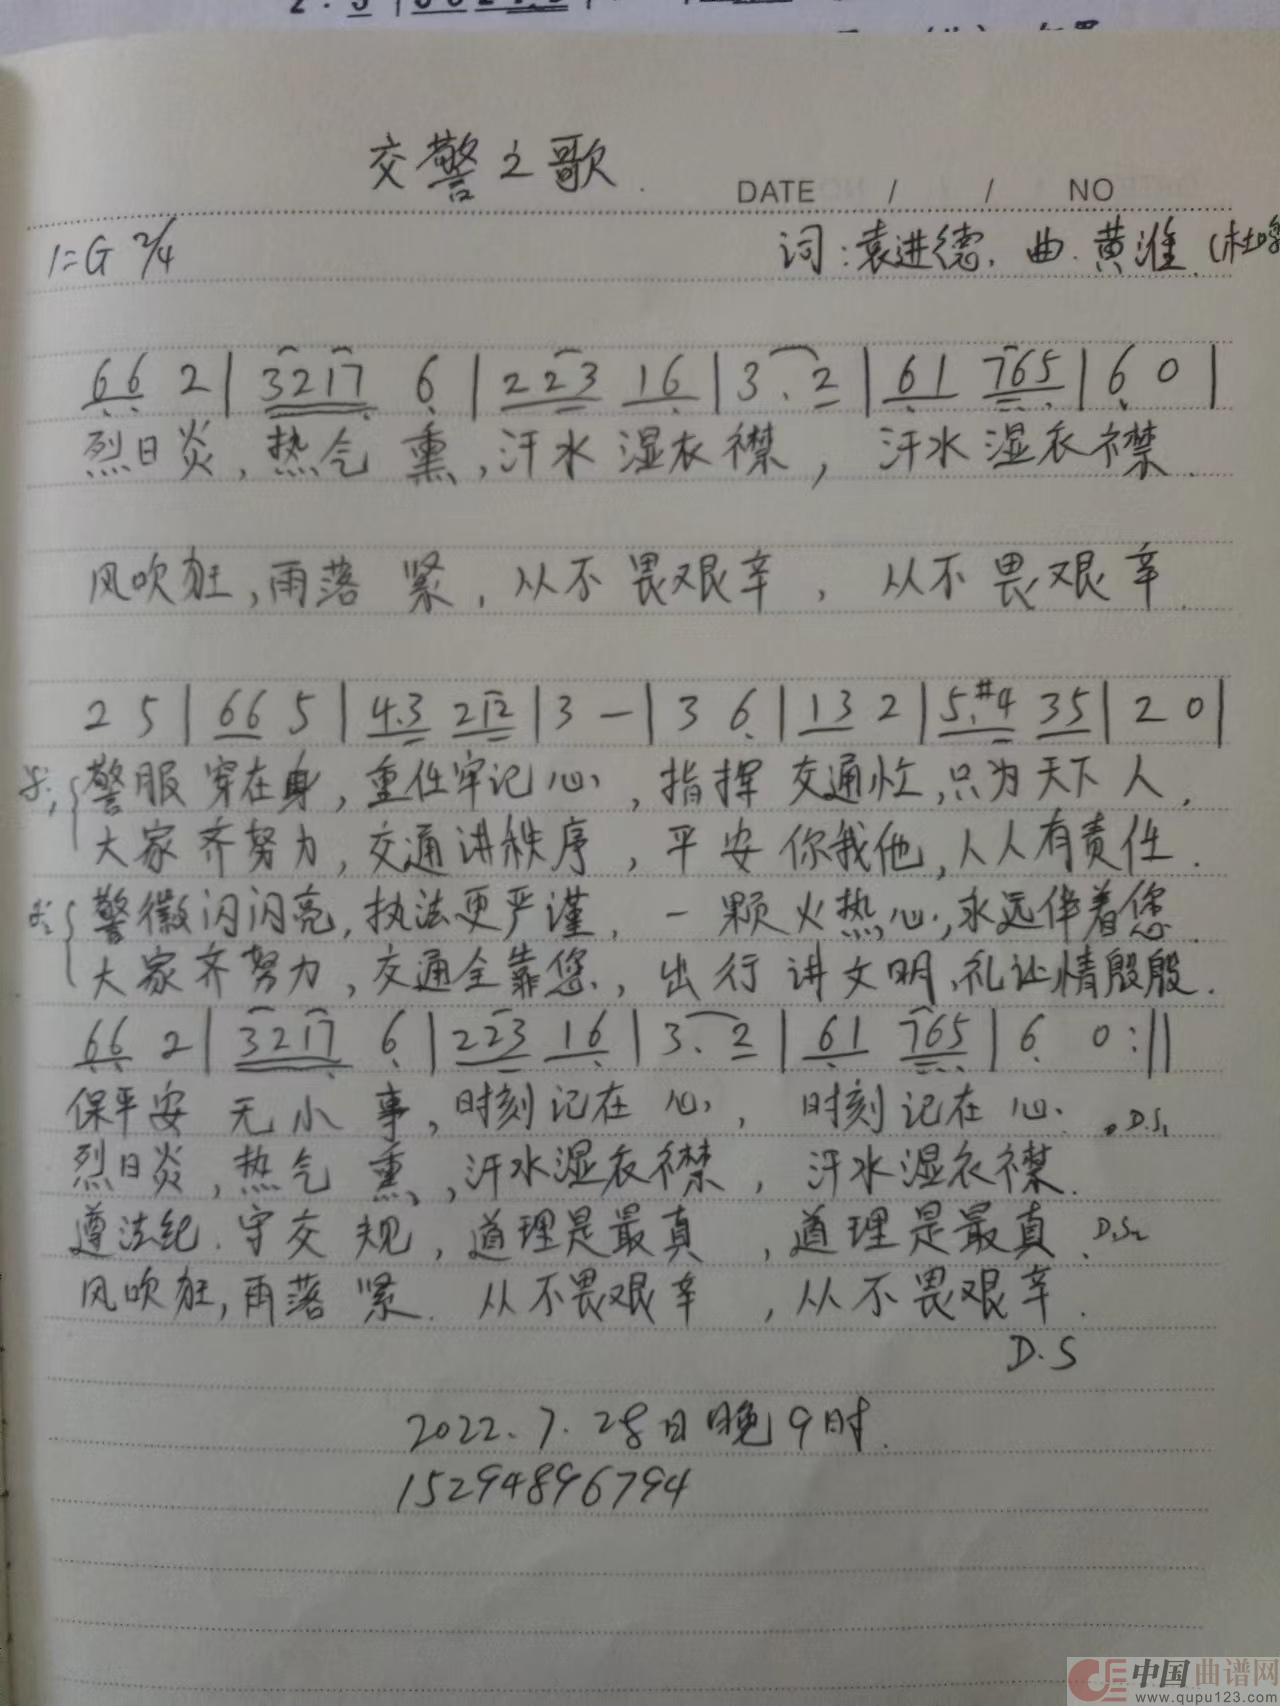 交警之歌.
DATE / / NO
1=G 2/4 词:袁进德. 曲.黄淮.(杜
6 6 2 | 3 2 1 7 6 | 2 2 3 1 6 | 3 . 2 | 6 1 7 6 5 | 6 0 |
烈日炎,热气熏,汗水湿衣襟,汗水湿衣襟.
风吹狂,雨落紧,从不畏艰辛,从不畏艰辛.
2 5 | 6 6 5 | 4. 3 2 1 2 | 3 — | 3 6 | 1 3 2 | 5. #4 3 5 | 2 0 |
警服穿在身,重任牢记心,指挥交通忙,只为天下人,
大家齐努力,交通讲秩序,平安你我他,人人有责任.
警徽闪闪亮,执法更严谨,一颗火热心,永远伴着您.
大家齐努力,交通全靠您,出行讲文明,礼让情殷殷.
6 6 2 | 3 2 1 7 6 | 2 2 3 1 6 | 3. 2 | 6 1 7 6 5 | 6 0 :||
保平安无小事,时刻记在心,时刻记在心. D.S1
烈日炎,热气熏,汗水湿衣襟,汗水湿衣襟.
遵法纪.守交规,道理是最真,道理是最真. D.S2
风吹狂,雨落紧.从不畏艰辛,从不畏艰辛.
D.S
2022.7.28日晚9时.
15294896794
中国曲谱网
www.qupu123.com